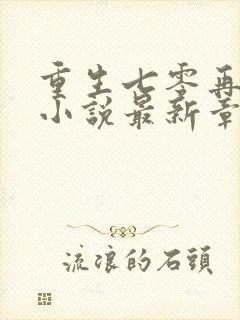 重生七零再
小說最新章
流浪的石頭